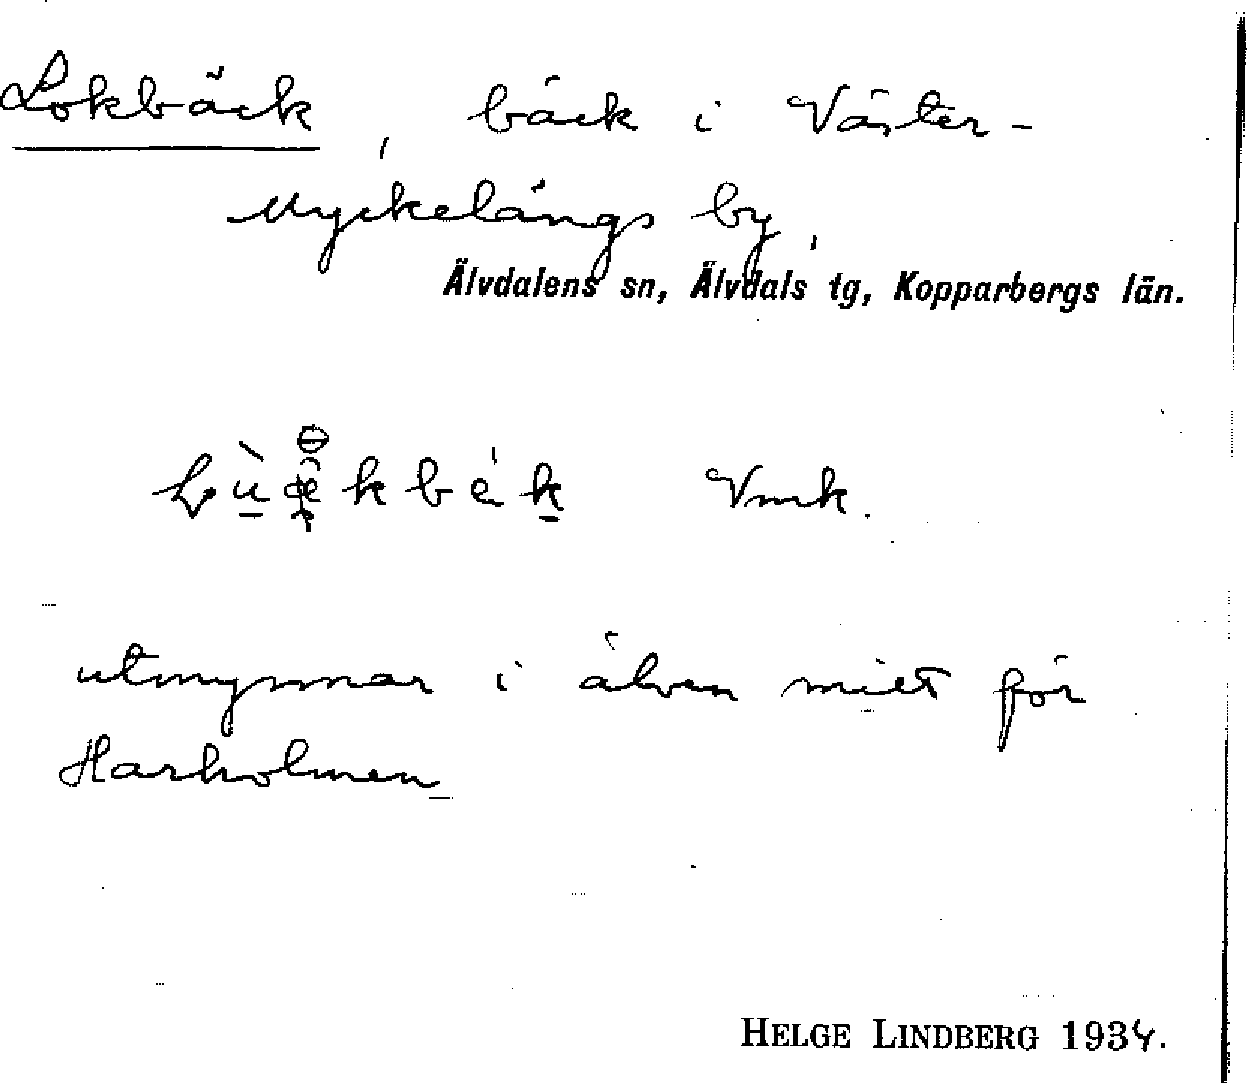 Lokbäck, bäck i Väster-
Myckelängs by,
Älvdalens sn, Älvdals tg, Kopparbergs län.
Vmk.
utmynnar i älven mitt för
Harholmen
HELGE LINDBERG 1934.